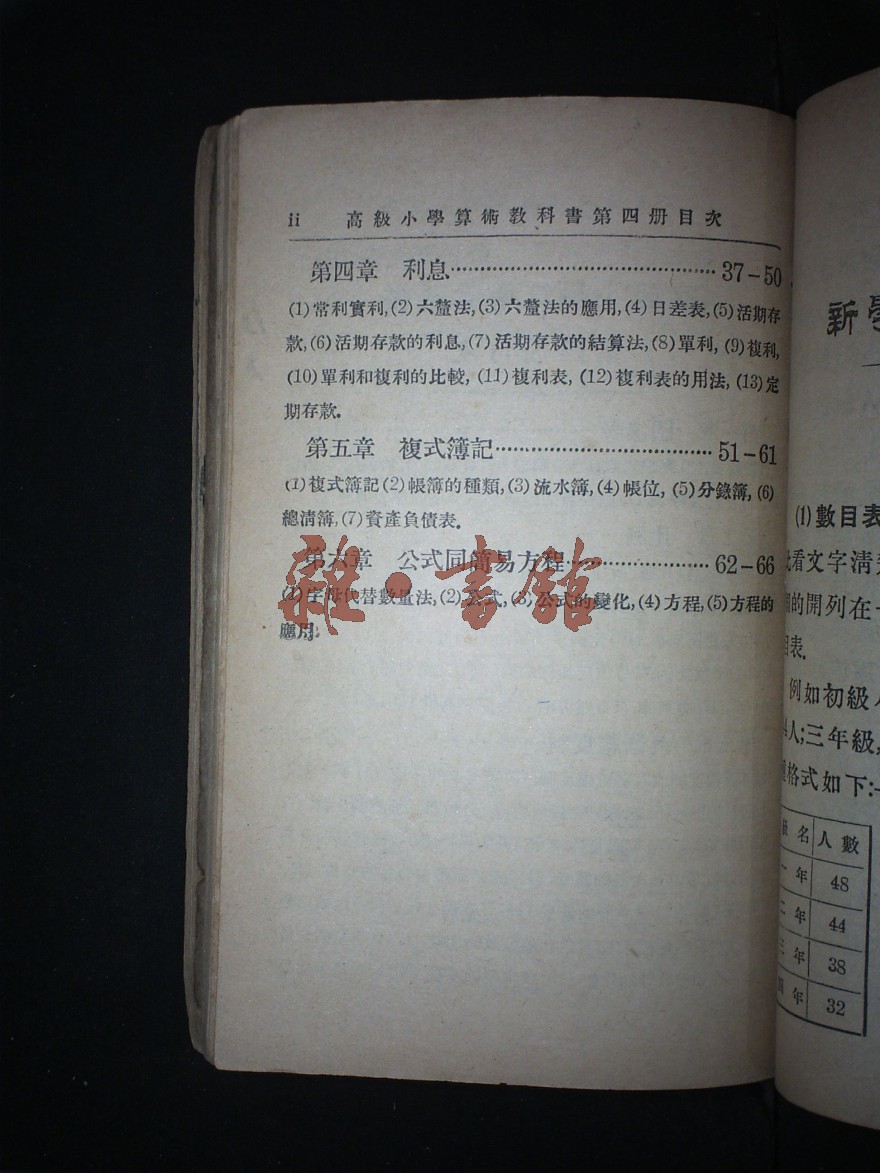 ii 高級小學算術教科書第四册目次
第四章 利息⋯⋯⋯⋯⋯⋯⋯⋯⋯37-50
(1)常利實利,(2)六釐法,(3)六釐法的應用,(4)日差表,(5)活期存
款,(6)活期存款的利息,(7)活期存款的結算法,(8)單利,(9)複利,
(10)單利和複利的比較,(11)複利表,(12)複利表的用法,(13)定
期存款.
第五章 複式簿記⋯⋯⋯⋯⋯⋯⋯51-61
(1)複式簿記(2)帳簿的種類,(3)流水簿,(4)帳位,(5)分錄簿,(6)
總淸簿,(7)資產負債表.
第六章 公式同簡易方程⋯⋯⋯⋯62-66
(1)字母代替數量法,(2)公式,(3)公式的變化,(4)方程,(5)方程的
應用.
雜·書館
新學
(1)數目表
看文字淸楚
的開列在一
表.
例如初級
4人;三年級,
格式如下:-
名 人數
一年 48
二年 44
三年 38
年 32